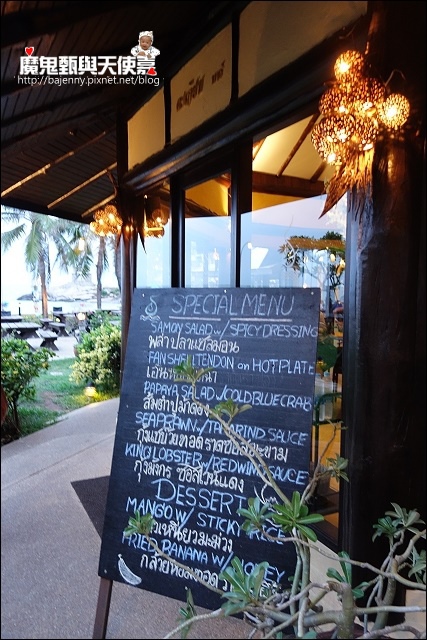 魔鬼甄與天使嘉
http://bajenny.pixnet.net/blog
SPECIAL MENU
SAMON SALAD w/SPICY DRESSING
พล่าปลาแซลมอน
FANSHELTENDON on HOTPLATE
PAPAYA SALAD /COLD BLUE CRAB
ส้มตำปูม้าดอง
SEAPRAWN w/TAMARIND SAUCE
กุ้งแชบ๊วยทอดราดซอสมะขาม
KING LOBSTER w/REDWINE SAUCE
กุ้งมังกร ซอสไวน์แดง
DESSERT
MANGO w/ STICKY RICE
ข้าวเหนียวมะม่วง
FRIED BANANA W/HONEY
กล้วยหอมทอด